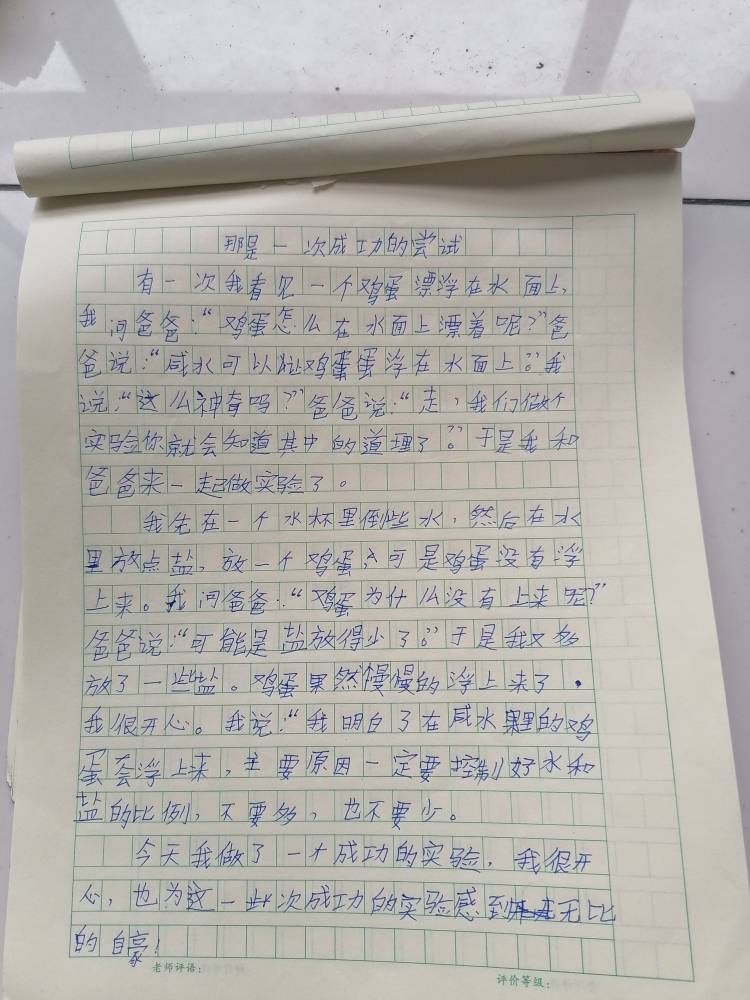 那是一次成功的尝试
有一次我看见一个鸡蛋漂浮在水面上,
我问爸爸:“鸡蛋怎么在水面上漂着呢?”爸
爸说:“咸水可以让鸡蛋蛋浮在水面上。”我
说:“这么神奇吗?”爸爸说:“走,我们做个
实验你就会知道其中的道理了。”于是我和
爸爸来一起做实验了。
我先在一个水杯里倒些水,然后在水
里放点盐,放一个鸡蛋,可是鸡蛋没有浮
上来。我问爸爸:“鸡蛋为什么没有上来呢?”
爸爸说:“可能是盐放得少了。”于是我又多
放了一些盐。鸡蛋果然慢慢的浮上来了.
我很开心。我说:“我明白了在咸水里的鸡
蛋会浮上来,主要原因一定要控制好水和
盐的比例,不要多,也不要少。
今天我做了一个成功的实验,我很开
心,也为这一些次成功的实验感到无比
的自豪!
老师评语:
评价等级: